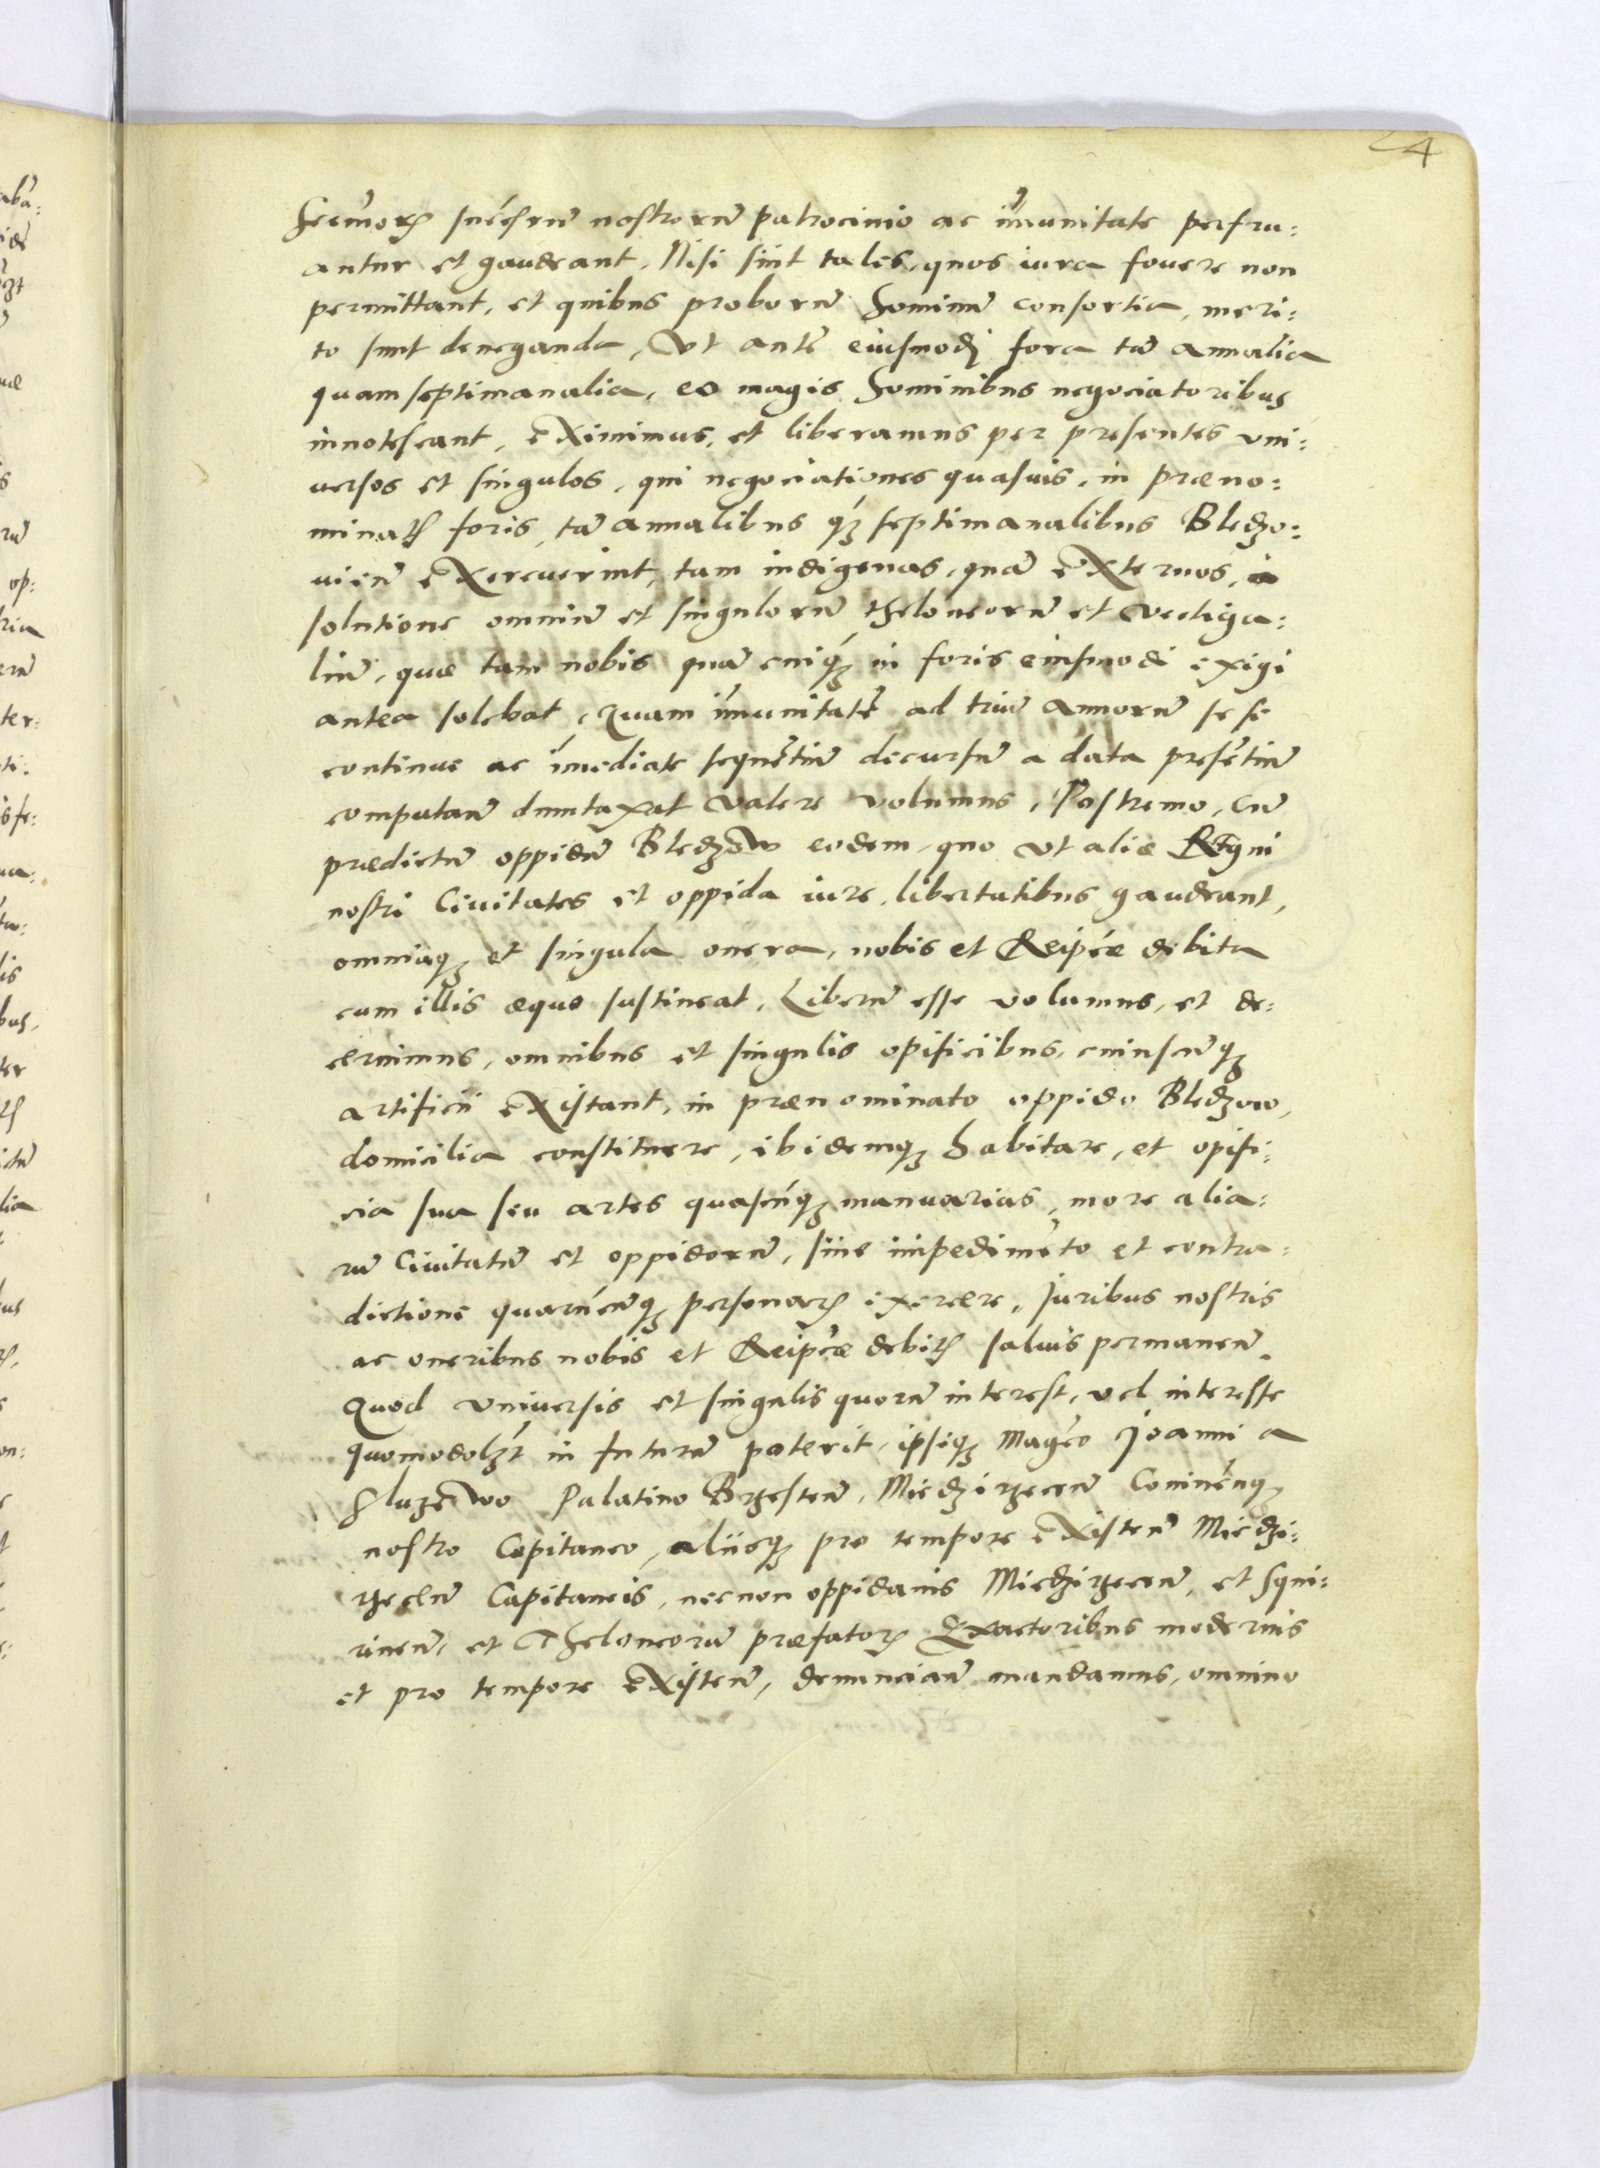 4
nostrorũ patrocinio ac im̃unitate perfru:
antur et gaudeant. Nisi sint tales, quos iura fouere non
permittant, et quibus proborũ hominũ consortia, meri:
to sunt deneganda, Vt antẽ eiusmodi fora tã annalia
quam septimanalia, eo magis hominibus negociatoribus
innotescant, eximimus, et liberamus per presentes vni:
uersos et singulos, qui negociationes quasuis, in præno:
minatis foris, tã annalibus qz septimanalibus Bledzo:
uien̄ exercuerint, tam indigenas, quã externos, a
solutione omniũ et singulorũ theloneorũ et vectiga:
liũ, quæ tam nobis quã cuiqz in foris eiusmodi exigi
antea solebat, Quam im̃unitatẽ ad triũ annorũ se se
continue ac im̃ediate sequẽtiũ decursũ a data presẽtiũ
computan̄ duntaxat valere volumus, Postremo, Cũ
prædictũ oppidũ Bledzow eodem, quo vt aliæ Regni
nostri Ciuitates et oppida iure, libertatibus gaudeant,
omniaqz et singula onera, nobis et Reipcæ debita
cum illis æque sustineat, Liberũ esse volumus, et de:
cernimus, omnibus et singulis opificibus, cuiuscunqz
artificii existant, in prænominato oppido Bledzow,
domicilia constituere, ibidemqz habitare, et opifi:
cia sua seu artes quascũqz manuarias, more alia:
rũ Ciuitatũ et oppidorũ, sine impedimẽto et contra:
dictione quarũcunqz personarꝝ exercere, Iuribus nostris
ac oneribus nobis et Reipcæ debitis saluis permanen̄.
Quod vniuersis et singulis quorũ interest, vel interesse
quomodolzt in futurũ poterit, ipsiqz Magco Joanni a
Sluzewo Palatino Brzesten̄, Miedzirzecen̄ Coninẽnqz
nostro Capitaneo, aliisqz pro tempore existen̄ Miedzi:
rzecen̄ Capitaneis, necnon oppidanis Miedzirzecen̄, et Squi:
rinen̄, et Theloneorũ præfatorꝝ Exactoribus modernis
et pro tempore existen̄, denuncian̄ mandamus, omnino